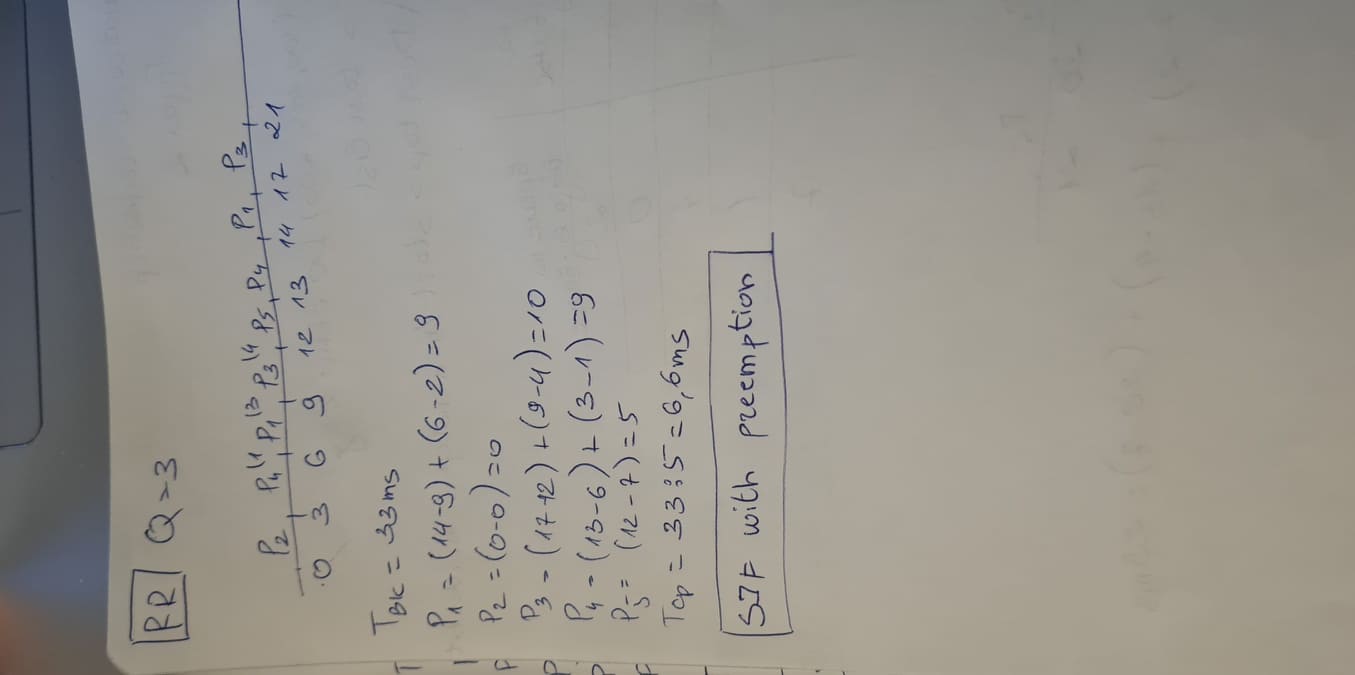 RR Q=3
P2 P4 \1 P1 \3 P3 \4 P5 P4 P1 P3
0 3 6 9 12 13 14 17 21
TBK = 33ms
P1 = (14-9) + (6-2) = 9
P2 = (0-0) = 0
P3 = (17-12) + (9-4) = 10
P4 = (13-6) + (3-1) = 9
P5 = (12-7) = 5
Tcp = 33:5 = 6,6ms
SJF with preemption